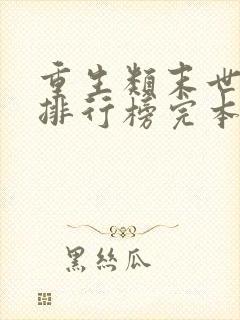 重生類末世
排行榜完本
黑絲瓜